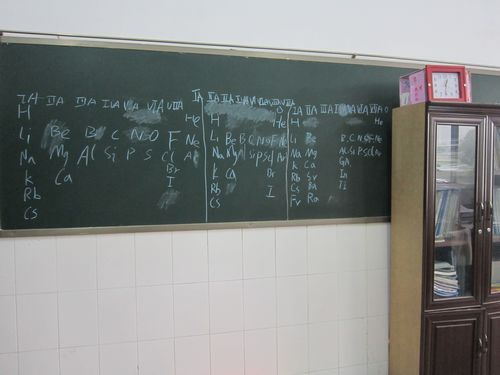 IA IIA IIIA IVA VA VIA VIIA
H He
Li Be B C N O F Ne
Na Mg Al Si P S Cl Ar
K Ca Br
Rb I
Cs
IA IIA IIIA IVA VA VIA VIIA
H He
Li Be B C N O F Ne
Na Mg Al Si P S Cl Ar
K Ca Br
Rb I
Cs
IA IIA IIIA IVA VA VIA VIIA O
He
Li Be B C N O F Ne
Na Mg Al Si P S Cl Ar
K Ca GA
Rb Sr In
Cs BA Tl
Fr Ra